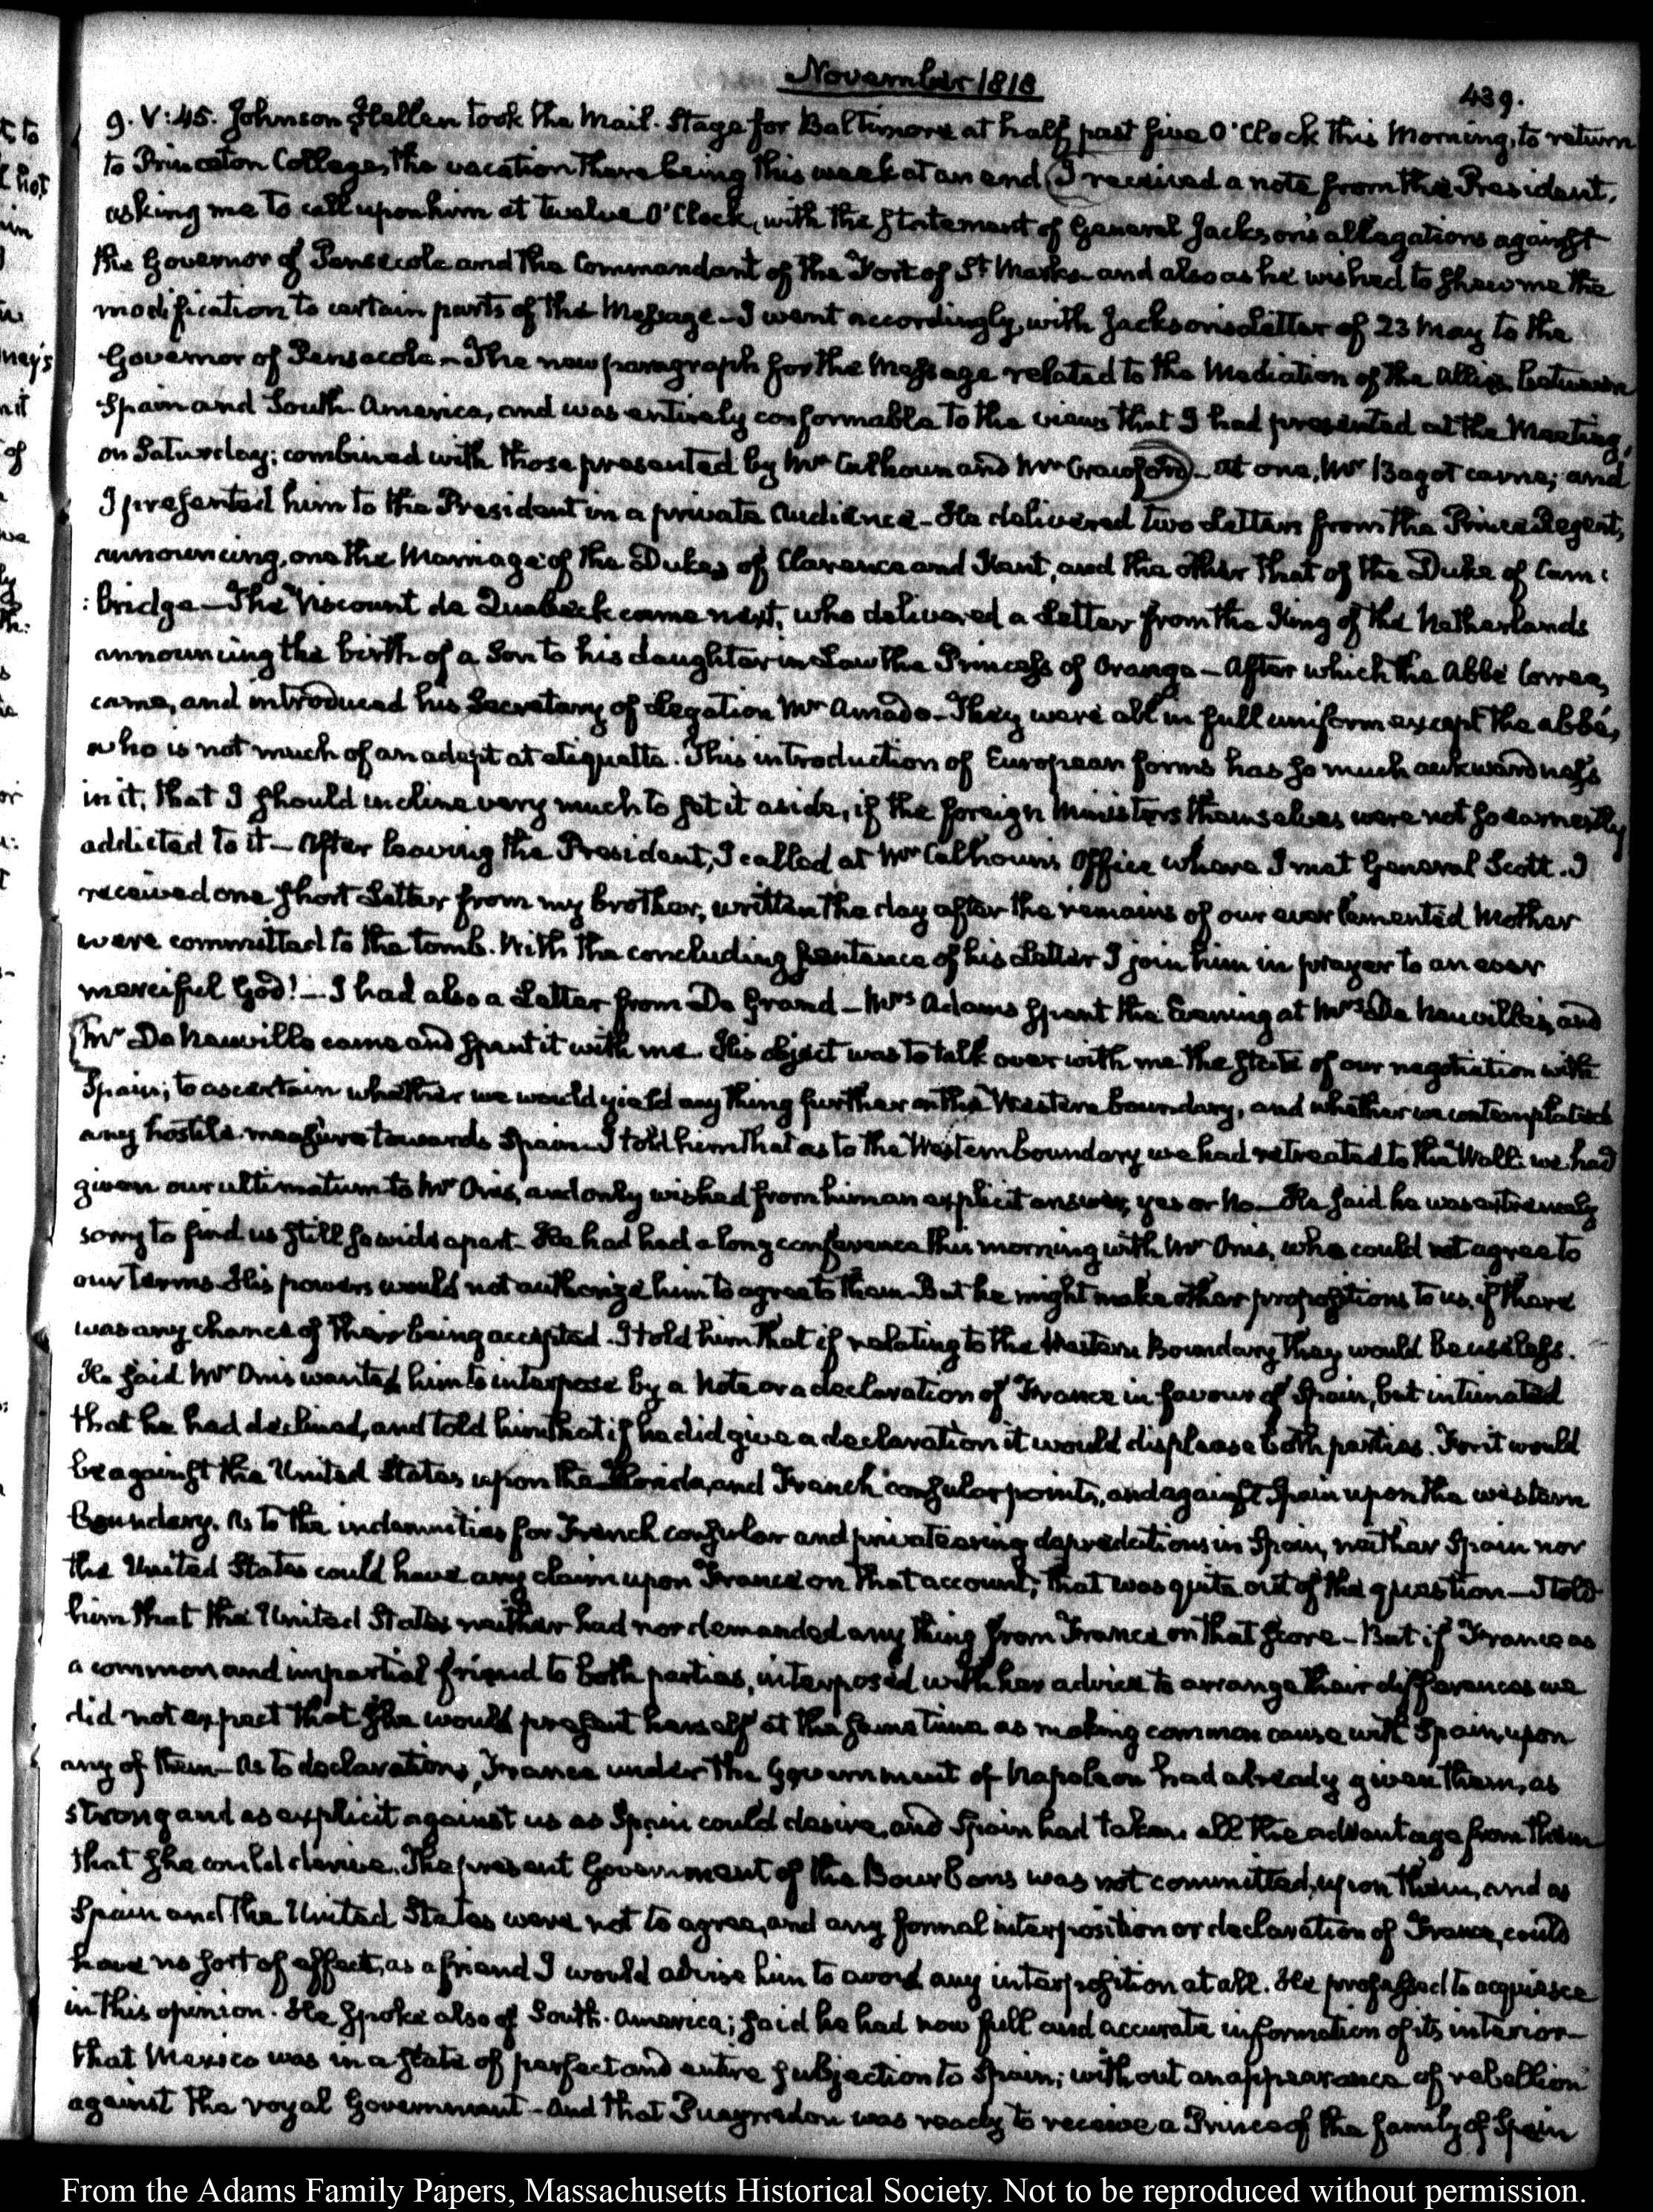 November 1818
439.
9. V:45. Johnson Hellen took the Mail-Stage for Baltimore at half past five O'Clock this Morning, to return
to Princeton College, the vacation there being this week at an end (I received a note from the President,
asking me to call upon him at twelve O'Clock, with the statement of General Jackson's allegations against
the Governor of Pensacola and the Commandant of the Fort of St. Marks and also as he wished to shew me the
modification to certain parts of the Message—I went accordingly, with Jackson's Letter of 23 May to the
Governor of Pensacola—The new paragraph for the Message related to the Mediation of the Allies between
Spain and South-America, and was entirely conformable to the views that I had presented at the Meeting,
on Saturday; combined with those presented by Mr Calhoun and Mr Crawford)—at one, Mr Bagot came; and
I presented him to the President in a private Audience—He delivered two Letters from the Prince Regent,
announcing, one the Marriage of the Dukes of Clarence and Kent, and the other that of the Duke of Cam:
:bridge—The Viscount de Quabeck came next, who delivered a Letter from the King of the Netherlands
announcing the birth of a Son to his daughter in Law the Princess of Orange—After which the Abbé Correa,
came, and introduced his Secretary of Legation Mr Amado—They were all in full uniform except the abbé,
who is not much of an adept at etiquette. This introduction of European forms has so much awkwardness
in it, that I should incline very much to set it aside, if the foreign Ministers themselves were not so earnestly
addicted to it—After leaving the President, I called at Mr Calhoun's Office where I met General Scott. I
received one short Letter from my brother, written the day after the remains of our ever lamented Mother
were committed to the tomb. With the concluding sentence of his Letter I join him in prayer to an ever
merciful God!—I had also a Letter from De Grand—Mrs Adams spent the Evening at Mrs De Neuville's, and
[Mr De Neuville came and spent it with me. His object was to talk over with me the state of our negotiation with
Spain; to ascertain whether we would yield any thing further on the Western boundary, and whether we contemplated
any hostile measure towards Spain—I told him that as to the Western boundary we had retreated to the Wall: we had
given our ultimatum to Mr Onis, and only wished from him an explicit answer, yes or no—He said he was extremely
sorry to find us still so wide apart—He had had a long conference this morning with Mr Onis, who could not agree to
our terms—His powers would not authorize him to agree to them—But he might make other propositions to us, if there
was any chance of their being accepted. I told him that if relating to the Western Boundary they would be useless.
He said Mr Onis wanted him to interpose by a Note or a declaration of France in favour of Spain, but intimated
that he had declined, and told him that if he did give a declaration it would displease both parties. For it would
be against the United States, upon the Florida, and French consular points, and against Spain upon the western
boundary. As to the indemnities for French consular and privateering depredations in Spain, neither Spain nor
the United States could have any claim upon France on that account; that was quite out of the question—I told
him that the United States neither had nor demanded any thing from France on that score—But if France as
a common and impartial friend to both parties, interposed with her advice to arrange their differences we
did not expect that she would present herself at the same time as making common cause with Spain, upon
any of them—As to declarations, France under the Government of Napoleon had already given them, as
strong and as explicit against us as Spain could desire, and Spain had taken all the advantage from them
that she could derive. The present Government of the Bourbons was not committed, upon them, and as
Spain and the United States were not to agree, and any formal interposition or declaration of France, could
have no sort of effect, as a friend I would advise him to avoid any interposition at all. He professed to acquiesce
in this opinion. He spoke also of South-America; said he had now full and accurate information of its interior—
that Mexico was in a state of perfect and entire subjection to Spain; without an appearance of rebellion
against the royal Government—And that Pueyrredon was ready to receive a Prince of the family of Spain
From the Adams Family Papers, Massachusetts Historical Society. Not to be reproduced without permission.